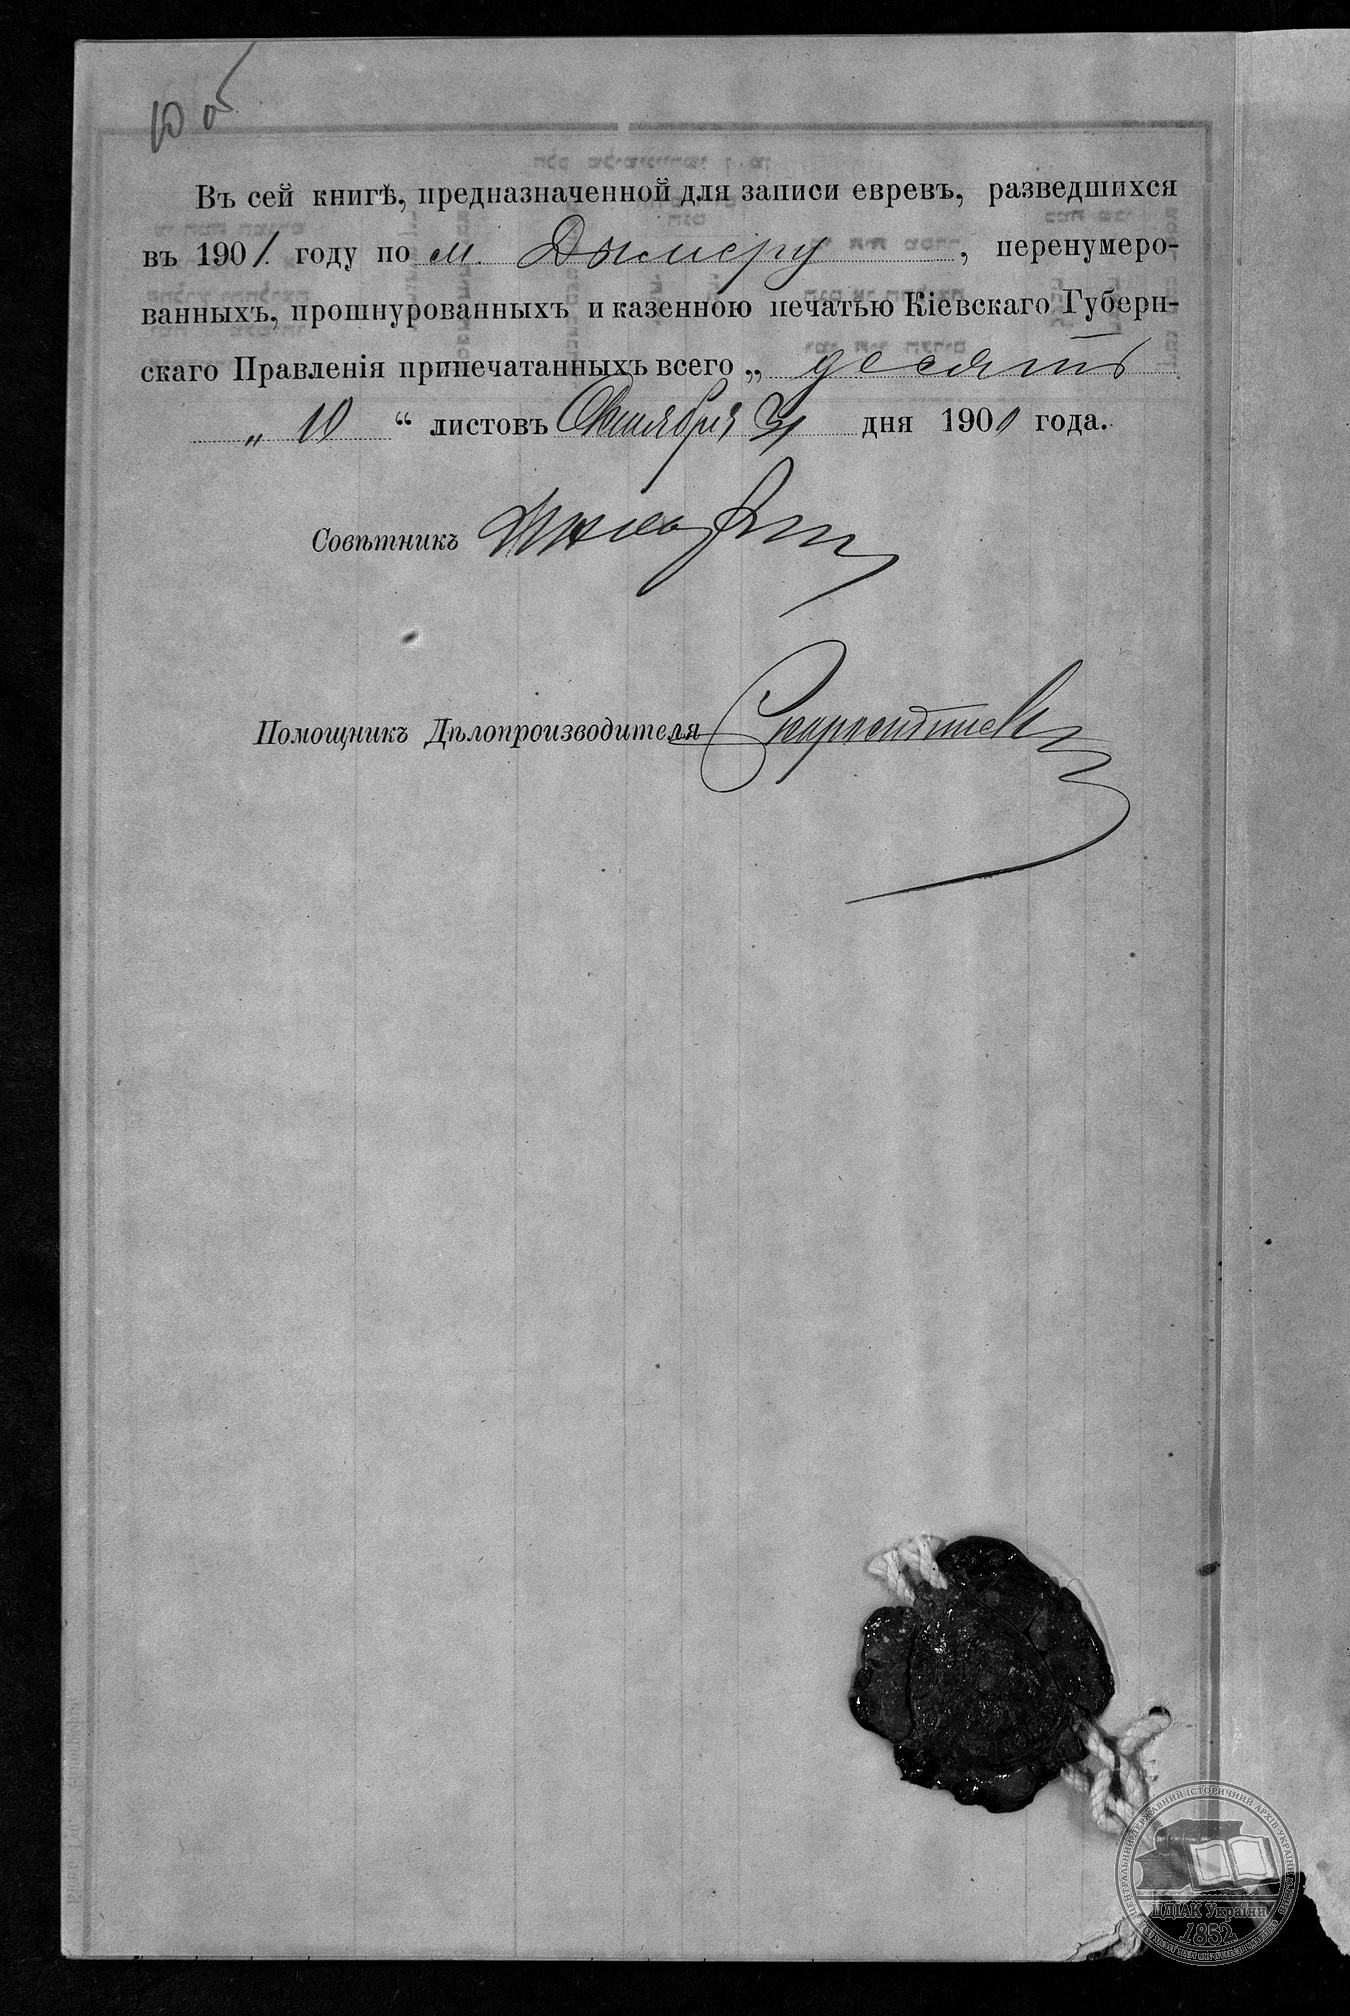 10 об
Въ сей книгѣ, предназначенной для записи евреевъ, разведшихся
въ 1901 году по м. Дымеру, перенумеро-
ванныхъ, прошнурованныхъ и казенною печатью Кіевскаго Губерн-
скаго Правленія припечатанныхъ всего „ десять
„ 10 “ листовъ Октября 31 дня 1900 года.
Совѣтникъ
Помощникъ Дѣлопроизводителя
ЦЕНТРАЛЬНИЙ ДЕРЖАВНИЙ ІСТОРИЧНИЙ АРХІВ УКРАЇНИ
ЦДІАК України
1852